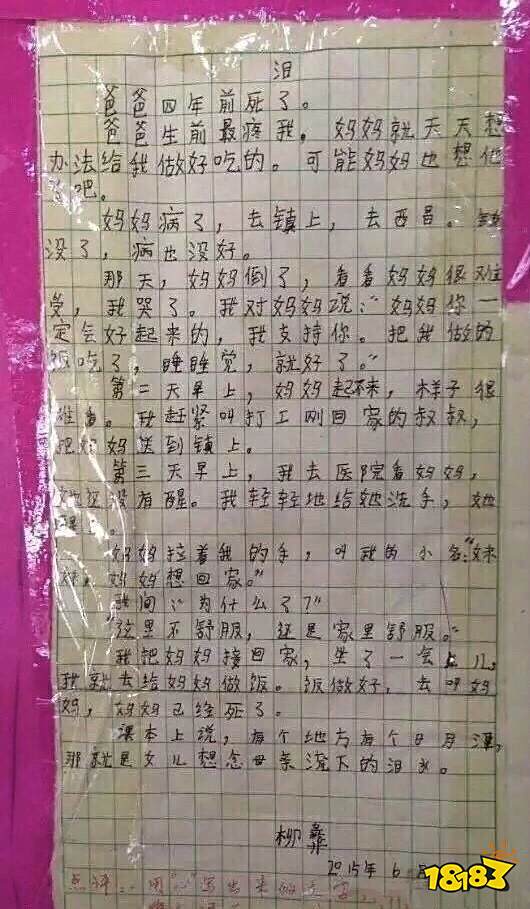 泪
爸爸四年前死了。
爸爸生前最疼我。妈妈就天天想
办法给我做好吃的。可能妈妈也想他
了吧。
妈妈病了，去镇上，去西昌。钱
没了，病也没好。
那天，妈妈倒了，看看妈妈很难
受，我哭了。我对妈妈说：“妈妈你一
定会好起来的，我支持你。把我做的
饭吃了，睡睡觉，就好了。”
第二天早上，妈妈起不来，样子很
难看。我赶紧叫打工刚回家的叔叔，
把妈妈送到镇上。
第三天早上，我去医院看妈妈，
她还没有醒。我轻轻地给她洗手，她
醒了。
妈妈拉着我的手，叫我的小名：“妹
妹，妈妈想回家。”
我问：“为什么了？”
“这里不舒服，还是家里舒服。”
我把妈妈接回家，坐了一会儿，
我就去给妈妈做饭。饭做好，去叫妈
妈，妈妈已经死了。
课本上说，有个地方有个日月潭，
那就是女儿想念母亲流下的泪水。
柳彝
2015年6
点评：用“心”写出来的文字
18183